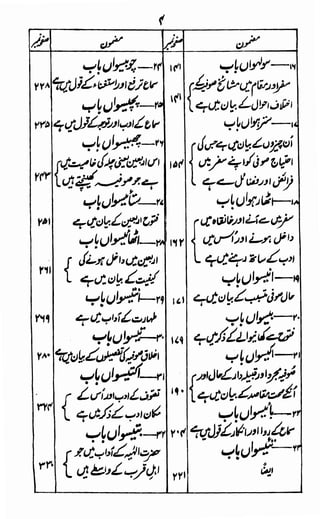 ۴
مضمون
صفحہ نمبر
۱۶ — سولہواں باب
سفر اور مقام میں مشائخ صوفیہ کے
اختلاف احوال کے بیان میں ہے
۱۴۱
۱۷ — سترہواں باب
ان چیزوں کے بیان میں ہے جس کی
احتیاج صوفی کو اپنے سفر میں
فرائض اور فضائل سے ہے
۱۵۴
۱۸ — اٹھارہواں باب
سفر میں سے آنے اور خانقاہ میں
داخل ہونے اور اس میں
ادب کے ساتھ رہنے میں ہے
۱۶۲
۱۹ — انیسواں باب
حال صوفی متسبب کے بیان میں ہے
۱۷۱
۲۰ — بیسواں باب
فتوح سے کھانیوالے کے ذکر میں ہے
۱۷۹
۲۱ — اکیسواں باب
صوفیہ مجرد اور قبیلہ دار کے حال اور
انکے صحت مقاصد کے بیان میں ہے
۱۹۰
۲۲ — بائیسواں باب
سماع کے رد اور انکار کے قول میں ہے
۲۰۴
۲۳ — تئیسواں باب
ایضاً
۲۲۱
مضمون
صفحہ نمبر
۲۴ — چوبیسواں باب
سماع میں ترفع اور استغناء کے قول میں ہے
۲۲۸
۲۵ — پچیسواں باب
سماع کے ادب اور توجہ کے قول میں ہے
۲۳۵
۲۶ — چھبیسواں باب
اس اربعین یعنی چلہ کی خاصیت میں
ہے جو صوفیہ کھینچتے ہیں
۲۴۳
۲۷ — ستائیسواں باب
فتوح اربعین کے بیان میں ہے
۲۵۱
۲۸ — اٹھائیسواں باب
اربعین میں داخل ہونے کی
کیفیت کے بیان میں ہے
۲۶۱
۲۹ — انتیسواں باب
طہارت کے آداب میں ہے
۲۶۹
۳۰ — تیسواں باب
اخلاق صوفیہ کی تفصیلوں کے بیان میں ہے
۲۸۰
۳۱ — اکتیسواں باب
تصوف کے ادب اور اس کے
مکان ادب کے ذکر میں ہے
۳۲۴
۳۲ — بتیسواں باب
حضرت الٰہیہ کے آداب میں جو
اہل قرب کے واسطے ہیں
۳۳۰